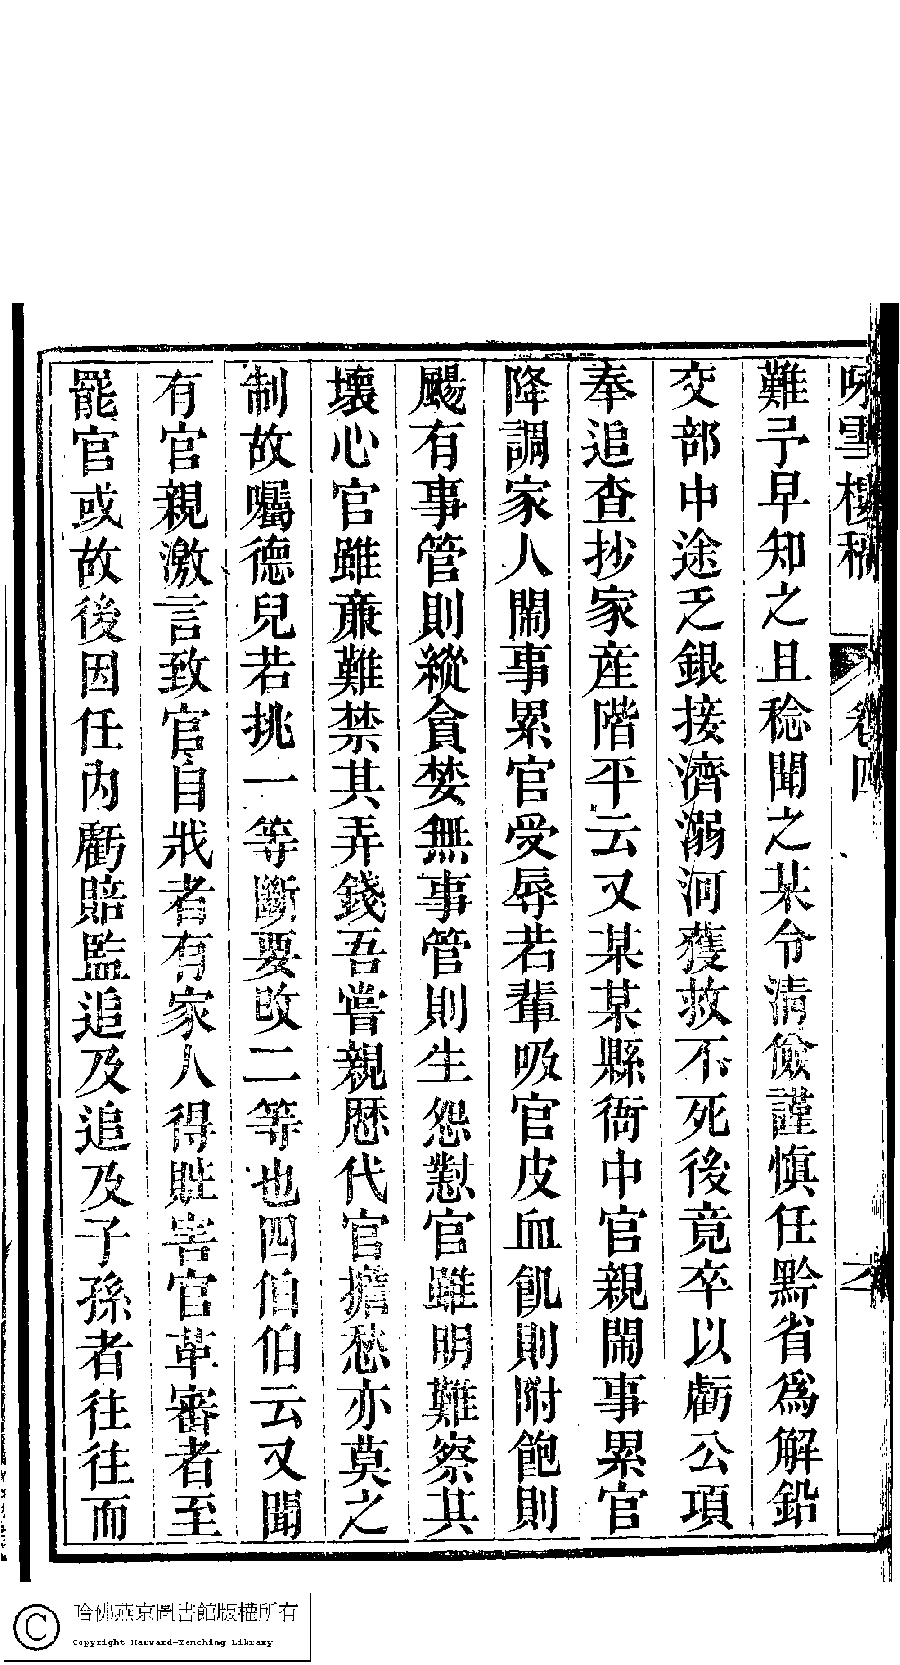 咏雪樓稿 卷四 七
難予早知之且稔聞之某令清儉謹慎任黔省爲解鉛
交部中途乏銀接濟溺河獲救不死後竟卒以虧公項
奉追查抄家産階平云又某某縣衙中官親鬧事累官
降調家人鬧事累官受辱若輩吸官皮血飢則附飽則
颺有事管則縱貪婪無事管則生怨懟官雖明難察其
壞心官雖亷難禁其弄錢吾嘗親歷代官擔愁亦莫之
制故囑德兒若挑一等斷要改二等也四伯伯云又聞
有官親激言致官自戕者有家人得賍害官革審者至
罷官或故後因任内虧賠監追及追及子孫者往往而
哈佛燕京圖書館版權所有
Copyright Harvard-Yenching Library